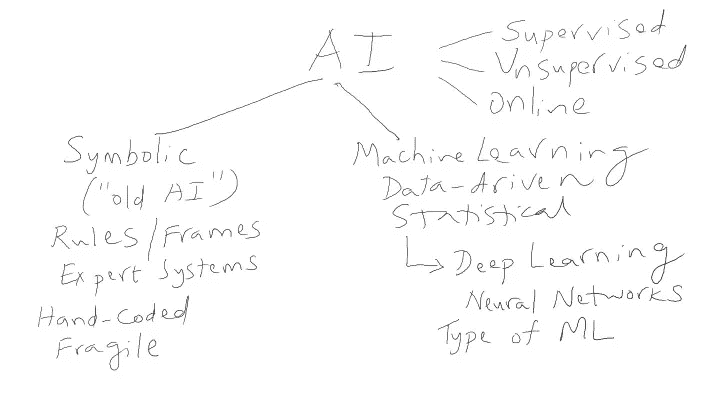 AI
Supervised
Unsupervised
Online
Symbolic
("old AI")
Rules/Frames
Expert Systems
Hand-Coded
Fragile
Machine Learning
Data-driven
Statistical
Deep Learning
Neural Networks
Type of ML